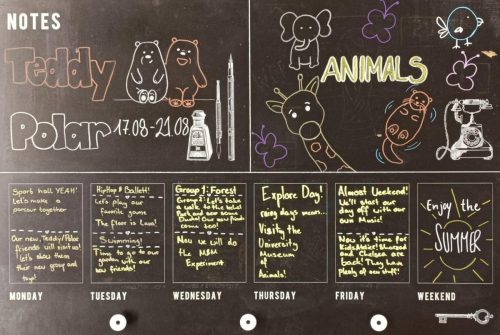 NOTES
Teddy
Polar 17.08-21.08
ANIMALS
Sport hall YEAH!
Let's make a
parcour together
Our new Teddy/Polar
friends will visit us!
let's show them
their new group and
toys!
MONDAY
HipHop & Ballett!
Let's play our
favorite game
The Floor is Lava!
Swimming!
Time to go to our
garden with our
new friends!
TUESDAY
Group 1: Forest!
Group 2: Let's take
a walk to the
Park and
Our new friends
come too!
Now we will do
the M&M
Experiment
WEDNESDAY
Explore Day!
rainy days
Visity the
University
Museum
of
Animals!
THURSDAY
Almost Weekend!
We'll start our
day off with our
own Music!
Now it's time for
and
Chelsea are
back! They have
plenty of our stuff!
FRIDAY
Enjoy the
SUMMER
WEEKEND